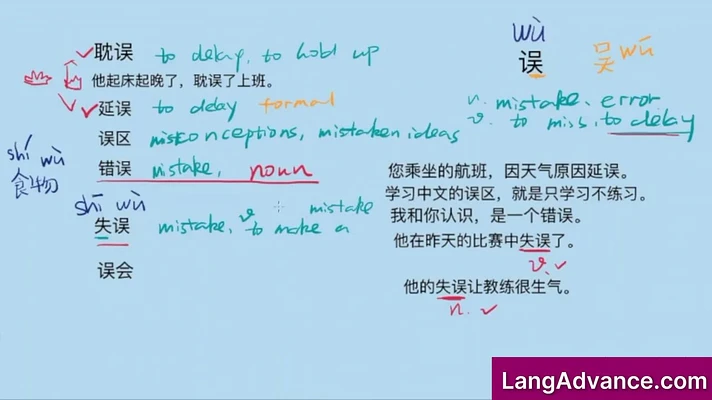 耽误 to delay, to hold up
他起床起晚了，耽误了上班。
延误 to delay formal
误区 misconceptions, mistaken ideas
错误 mistake, noun
shí wù
食物
shī wù
失误 mistake, v. to make a mistake
误会
wù
误 吴 wú
n. mistake, error
v. to miss, to delay
您乘坐的航班，因天气原因延误。
学习中文的误区，就是只学习不练习。
我和你认识，是一个错误。
他在昨天的比赛中失误了。
v.
他的失误让教练很生气。
n.
LangAdvance.com